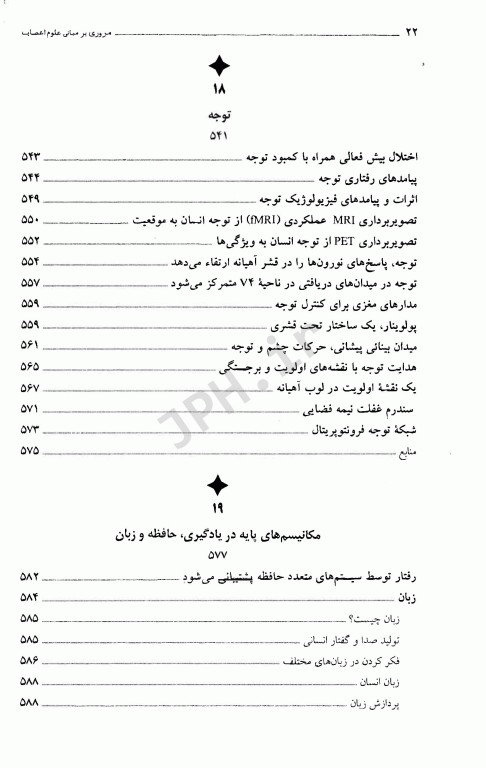 ۲۲ مروری بر مبانی علوم اعصاب
۱۸
توجه
۵۴۱
اختلال بیش فعالی همراه با کمبود توجه ۵۴۳
پیامدهای رفتاری توجه ۵۴۴
اثرات و پیامدهای فیزیولوژیک توجه ۵۴۹
تصویربرداری MRI عملکردی (fMRI) از توجه انسان به موقعیت ۵۵۰
تصویربرداری PET از توجه انسان به ویژگی‌ها ۵۵۲
توجه، پاسخ‌های نورون‌ها را در قشر آهیانه ارتقاء می‌دهد ۵۵۴
توجه در میدان‌های دریافتی در ناحیهٔ V۴ متمرکز می‌شود ۵۵۷
مدارهای مغزی برای کنترل توجه ۵۵۹
پولوینار، یک ساختار تحت قشری ۵۵۹
میدان بینائی پیشانی، حرکات چشم و توجه ۵۶۱
هدایت توجه با نقشه‌های اولویت و برجستگی ۵۶۵
یک نقشهٔ اولویت در لوب آهیانه ۵۶۷
سندرم غفلت نیمه فضایی ۵۷۱
شبکهٔ توجه فرونتوپریتال ۵۷۳
منابع ۵۷۵
۱۹
مکانیسم‌های پایه در یادگیری، حافظه و زبان
۵۷۷
رفتار توسط سیستم‌های متعدد حافظه پشتیبانی می‌شود ۵۸۲
زبان ۵۸۴
زبان چیست؟ ۵۸۵
تولید صدا و گفتار انسانی ۵۸۵
فکر کردن در زبان‌های مختلف ۵۸۶
زبان انسان ۵۸۸
پردازش زبان ۵۸۸
JPH.ir